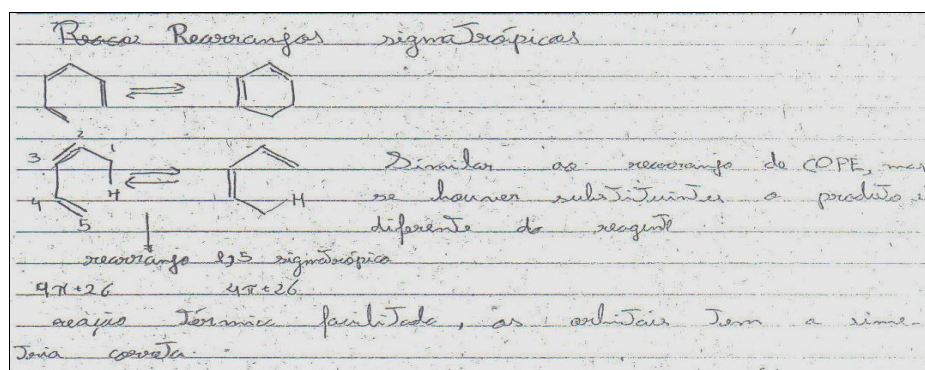 Rearranjos sigmatrópicos
2
3 1
H H
4
5
Similar ao rearranjo de COPE, mas
se houver substituintes o produto é
diferente do reagente
rearranjo 1,5 sigmatrópico
4π+2δ 4π+2δ
reação térmica facilitada, os orbitais tem a sime-
tria correta.